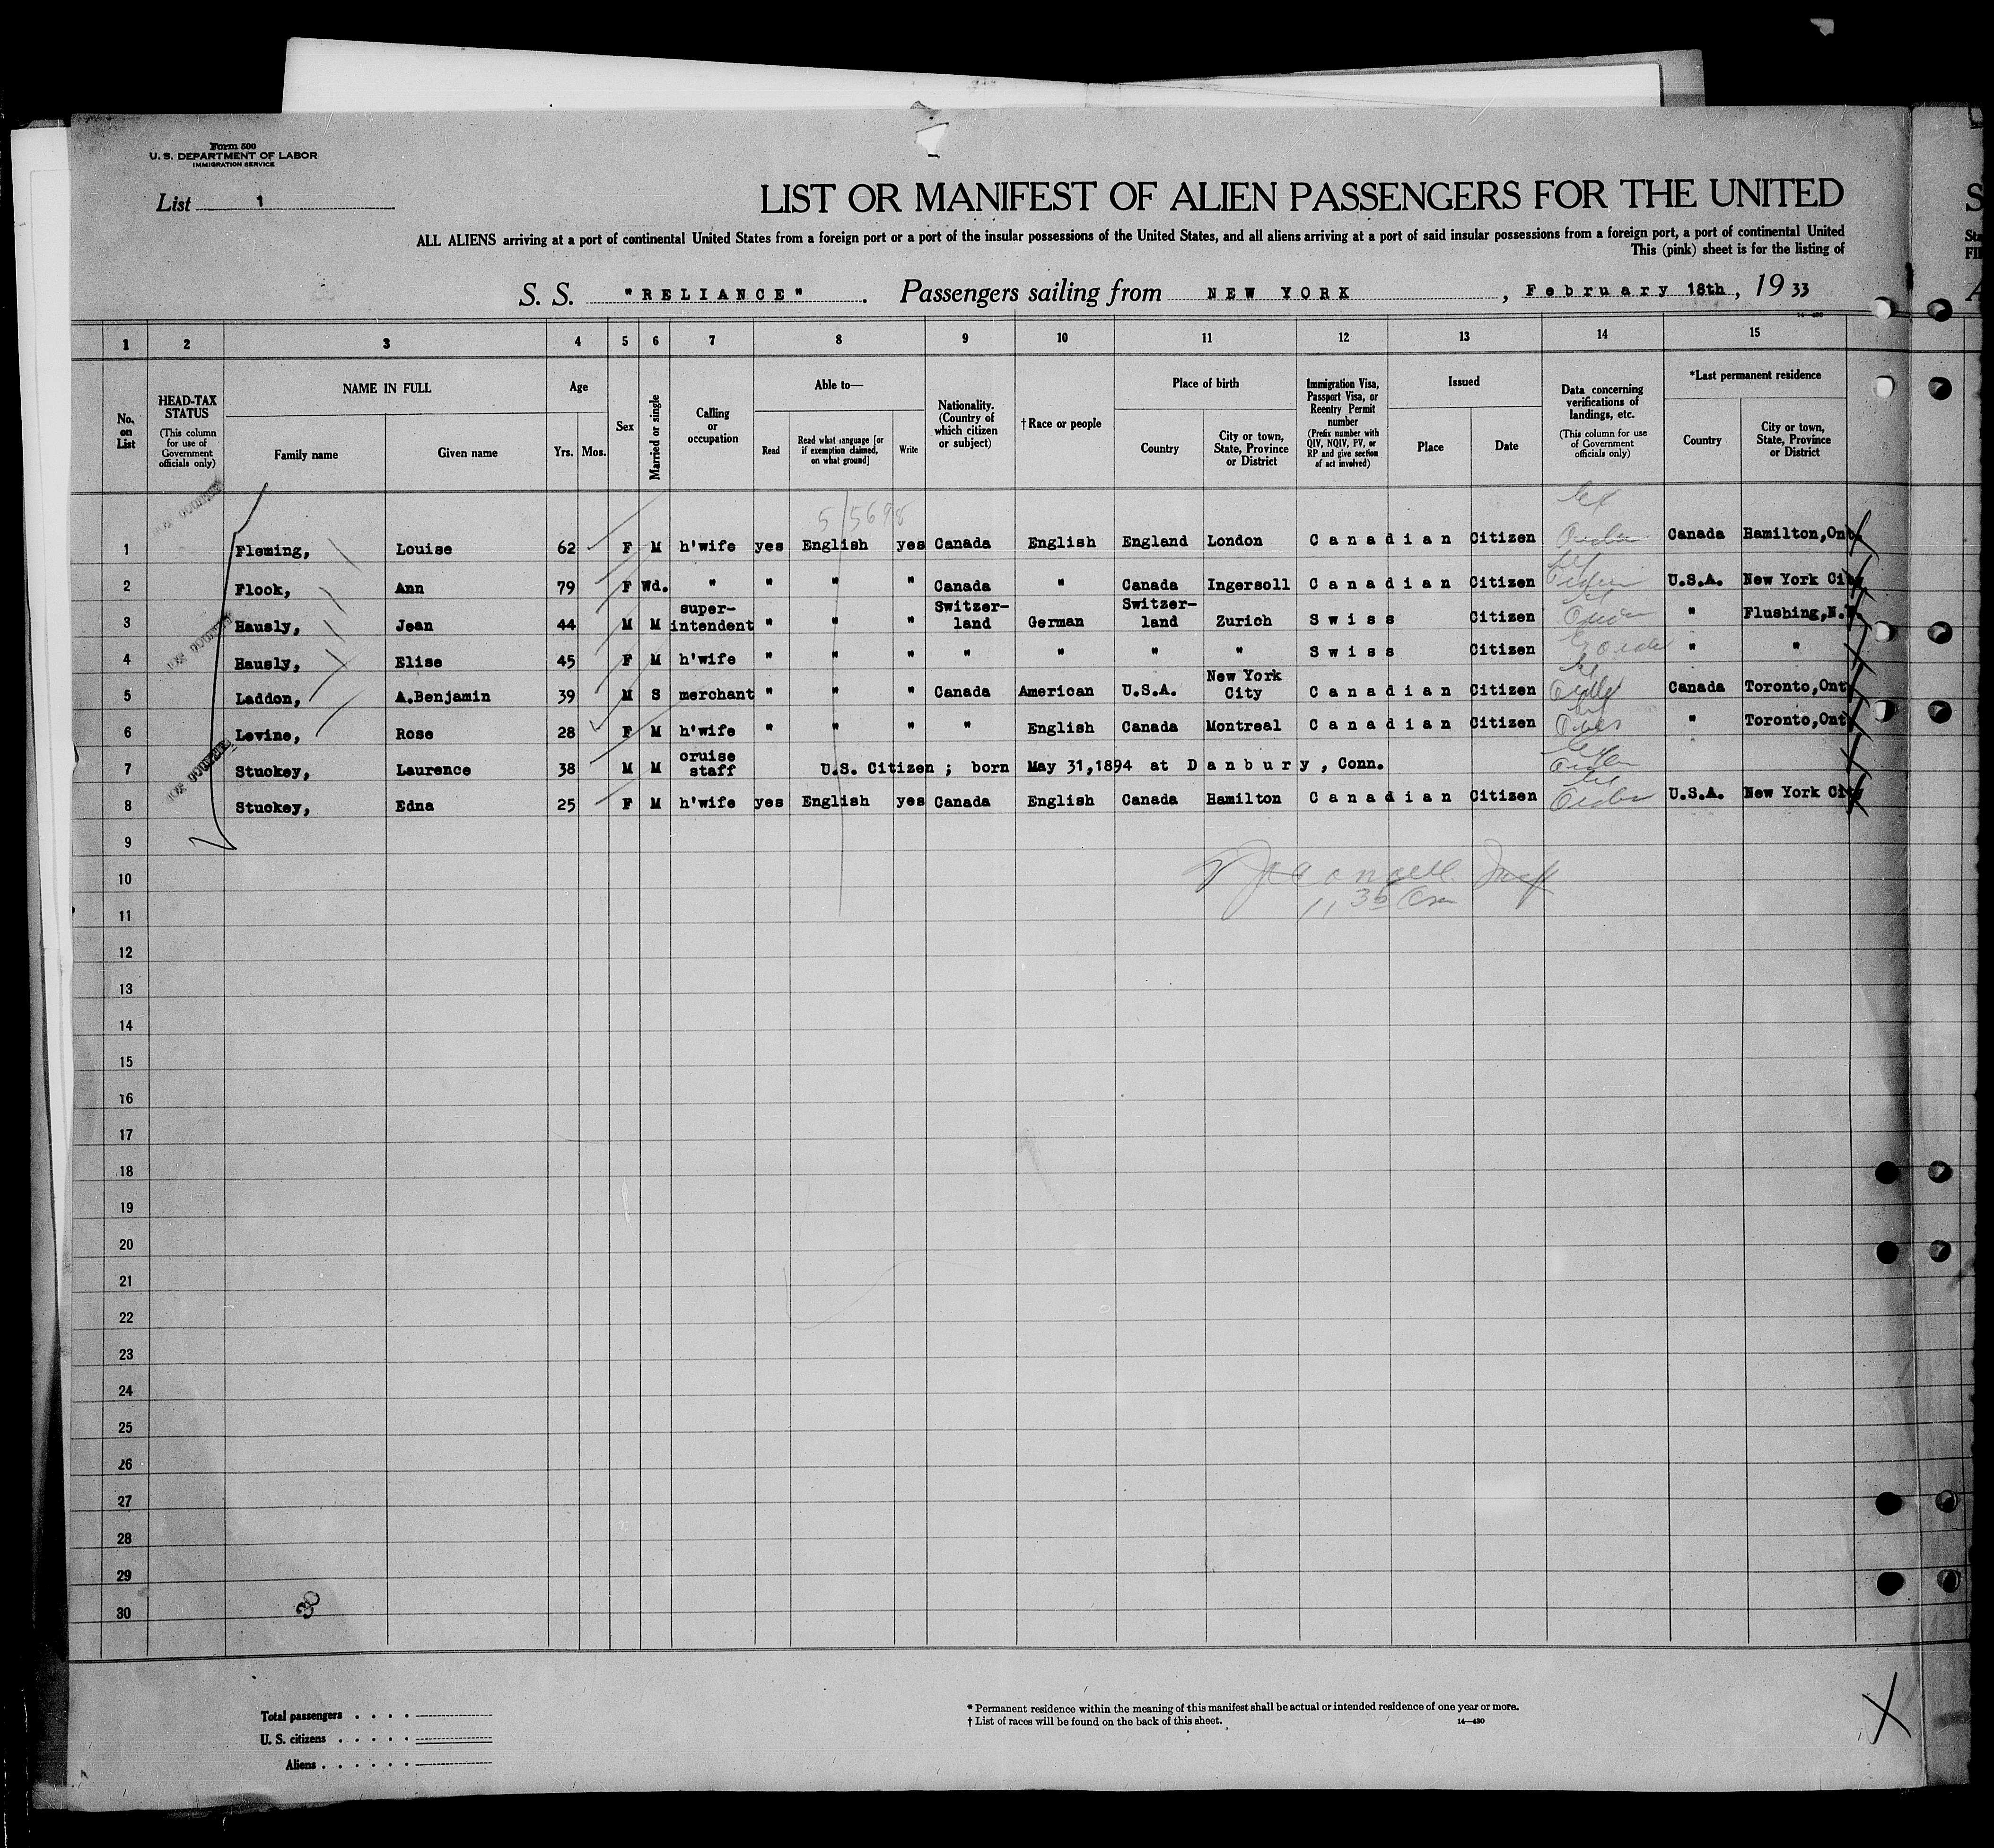 Form 500
U. S. DEPARTMENT OF LABOR
IMMIGRATION SERVICE
List 1
LIST OR MANIFEST OF ALIEN PASSENGERS FOR THE UNITED
ALL ALIENS arriving at a port of continental United States from a foreign port or a port of the insular possessions of the United States, and all aliens arriving at a port of said insular possessions from a foreign port, a port of continental United
This (pink) sheet is for the listing of
S. S. "RELIANCE". Passengers sailing from NEW YORK, February 18th, 19 33
14—430
1 2 3 4 5 6 7 8 9 10 11 12 13 14 15
No. on List
HEAD-TAX STATUS
(This column for use of Government officials only)
NAME IN FULL
Family name Given name
Age
Yrs. Mos.
Sex
Married or single
Calling or occupation
Able to—
Read
Read what language [or if exemption claimed, on what ground]
Write
Nationality. (Country of which citizen or subject)
†Race or people
Place of birth
Country
City or town, State, Province or District
Immigration Visa, Passport Visa, or Reentry Permit number
(Prefix number with QIV, NQIV, PV, or RP and give section of act involved)
Issued
Place Date
Data concerning verifications of landings, etc.
(This column for use of Government officials only)
*Last permanent residence
Country
City or town, State, Province or District
5/5698
1 Fleming, Louise 62 F M h'wife yes English yes Canada English England London Canadian Citizen Canada Hamilton,Ont
2 Flook, Ann 79 F Wd. " " " " Canada " Canada Ingersoll Canadian Citizen U.S.A. New York City
3 Hausly, Jean 44 M M super-intendent " " " Switzer-land German Switzer-land Zurich Swiss Citizen " Flushing,N.Y.
4 Hausly, Elise 45 F M h'wife " " " " " " " Swiss Citizen " "
5 Laddon, A.Benjamin 39 M S merchant " " " Canada American U.S.A. New York City Canadian Citizen Canada Toronto,Ont
6 Levine, Rose 28 F M h'wife " " " " English Canada Montreal Canadian Citizen " Toronto,Ont
7 Stuckey, Laurence 38 M M cruise staff U.S. Citizen ; born May 31,1894 at Danbury, Conn.
8 Stuckey, Edna 25 F M h'wife yes English yes Canada English Canada Hamilton Canadian Citizen U.S.A. New York City
9
10
11
12
13
14
15
16
17
18
19
20
21
22
23
24
25
26
27
28
29
30
30
Total passengers . . . .
U. S. citizens . . . . .
Aliens . . . . . .
* Permanent residence within the meaning of this manifest shall be actual or intended residence of one year or more.
† List of races will be found on the back of this sheet. 14—430